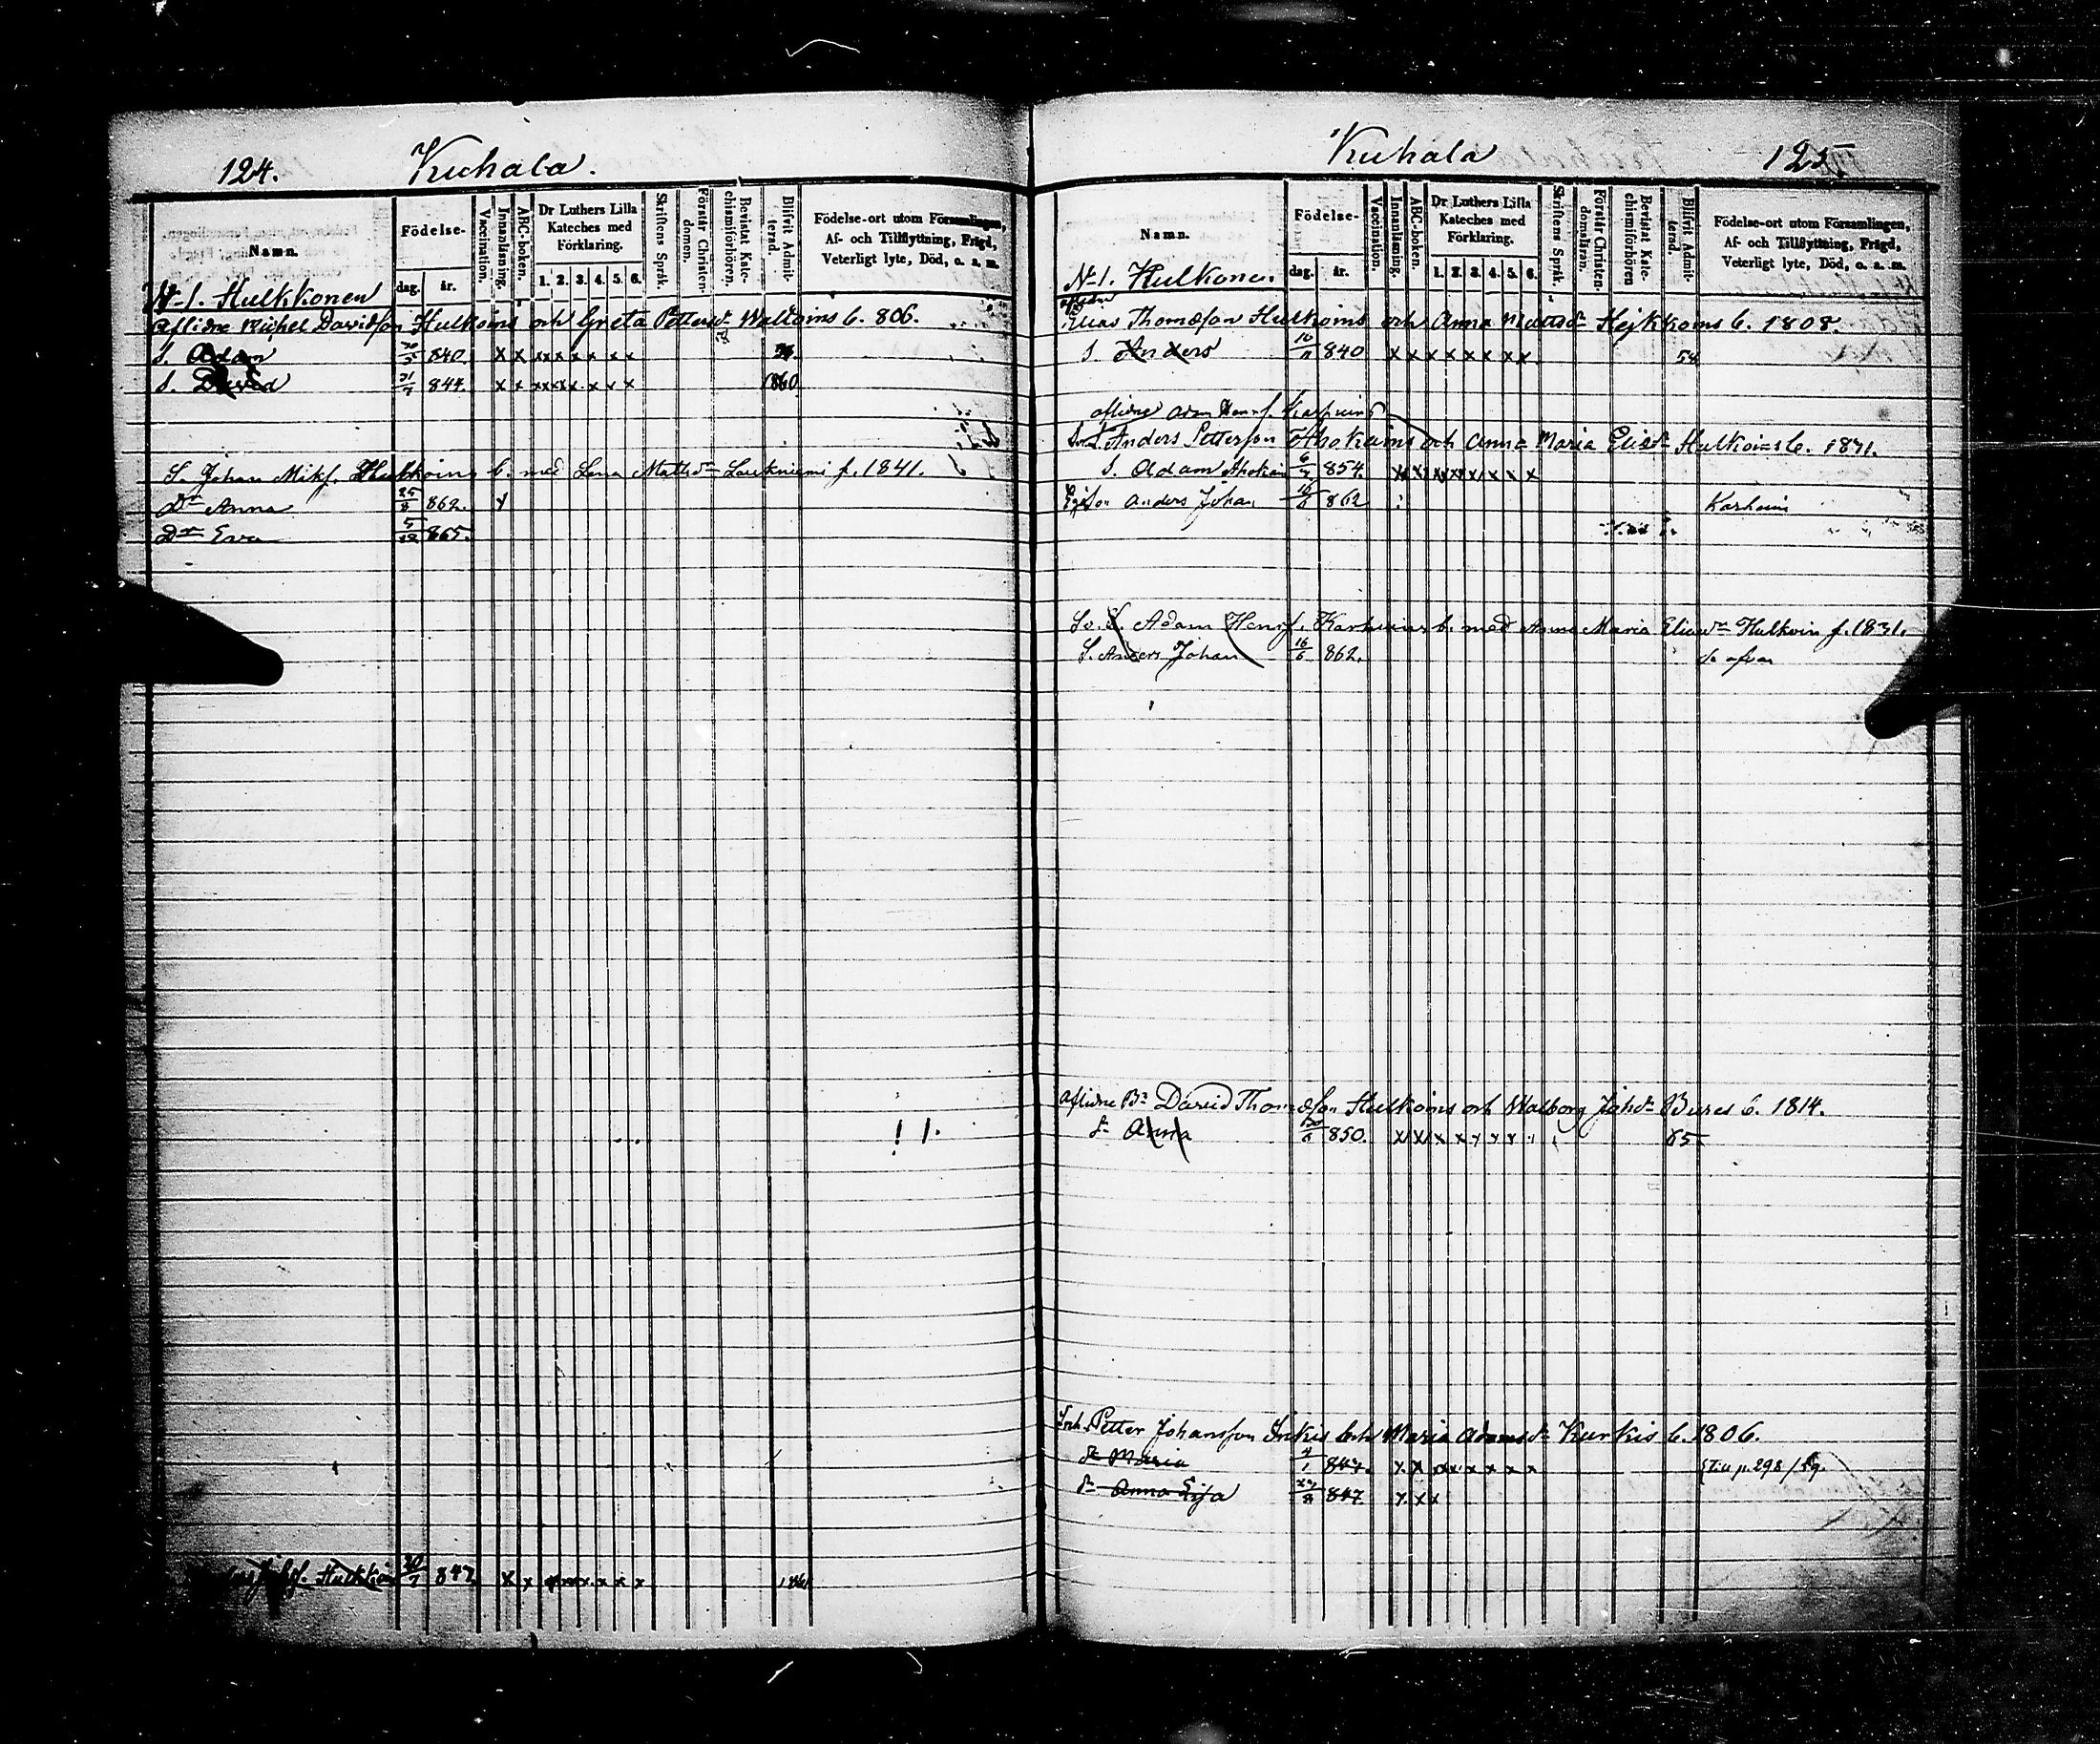 124. Kuhala.
Namn.
Födelse-
dag. år.
Vaccination.
Innanläsning.
ABC-boken.
Dr Luthers Lilla Kateches med Förklaring.
1. 2. 3. 4. 5. 6.
Skriftens Språk.
Förstår Christen-domen.
Bevistat Kate-chismiförhören.
Blifvit Admit-terad.
Födelse-ort utom Församlingen, Af- och Tillflyttning, Frägd, Veterligt lyte, Död, o. s. m.
N-1. Hulkkonen
Aflidne Michel Davidson Hulkoins och Greta Pettersd. Waltoins b. 806.
s. Adam 5 840 x x x x x x x x
s. David 31/7 844. x x x x x x x x 1860
S. Johan Mikf. Hulkkoins b. med Lena Mattsdr Laukniemi f. 1841.
Dr Anna 25/8 862. y
Dr Eva 5/12 865.
! 1.
Hulkkoin 7 847 x x x x x x x x
Kuhala 125.
Namn.
Födelse-
dag. år.
Vaccination.
Innanläsning.
ABC-boken.
Dr Luthers Lilla Kateches med Förklaring.
1. 2. 3. 4. 5. 6.
Skriftens Språk.
Förstår Christen-domsläran.
Bevistat Kate-chismiförhören
Blifvit Admit-terad.
Födelse-ort utom Församlingen, Af- och Tillflyttning, Frägd, Veterligt lyte, Död, o. s. m.
N-1. Hulkone.
Elias Thomasson Hulkoins och Anna Mattsd. Hejkkoins b. 1808.
s. Anders 10 840 x x x x x x x x 54
aflidne Adam Henrf. Karhuins
Anders Petterson och Anna Maria Eliasd. Hulkoins b. 1831.
s. Adam 6 854. x x x x x x x x
Anders Johan 16/6 862 Karhuin
Adam Henrf. Karhuins b. med Anna Maria Eliasdr Hulkoin f. 1831.
S. Anders Johan 16/6 862. se ofvan
Aflidne Br David Thomasson Hulkoins och Walborg Johdr Bures b. 1814.
dr Anna 6 850. x x x x x x x 65
Inh. Petter Johansson Inkis och Maria Adamsdr Kurkis b. 1806.
dr Maria 4/1 844. x x x x x x x x p. 298/59.
dr Anna Lisa 27/8 847 x x x